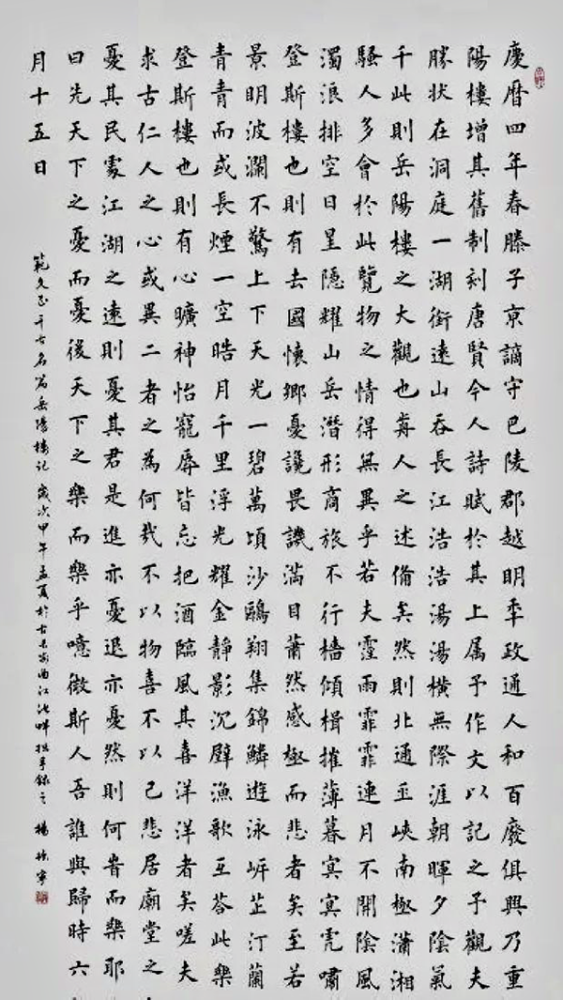 慶曆四年春滕子京謫守巴陵郡越明年政通人和百廢俱興乃重
陽樓增其舊制刻唐賢今人詩賦於其上属予作文以記之予觀夫
勝狀在洞庭一湖銜遠山吞長江浩浩湯湯橫無際涯朝暉夕陰氣
千此則岳陽樓之大觀也前人之述備矣然則北通巫峽南極瀟湘
騷人多會於此覽物之情得無異乎若夫霪雨霏霏連月不開陰風
濁浪排空日星隱耀山岳潛形商旅不行檣傾楫摧薄暮冥冥虎嘯
登斯樓也則有去國懷鄉憂讒畏譏滿目蕭然感極而悲者矣至若
景明波瀾不驚上下天光一碧萬頃沙鷗翔集錦鱗遊泳岸芷汀蘭
青青而或長煙一空皓月千里浮光耀金靜影沉璧漁歌互答此樂
登斯樓也則有心曠神怡寵辱皆忘把酒臨風其喜洋洋者矣嗟夫
求古仁人之心或異二者之為何哉不以物喜不以己悲居廟堂之
憂其民處江湖之遠則憂其君是進亦憂退亦憂然則何時而樂耶
曰先天下之憂而憂後天下之樂而樂乎噫微斯人吾誰與歸時六
月十五日
範文正千古名篇岳陽樓記歲次甲午孟夏於古長安曲江池畔拙手錄之楊